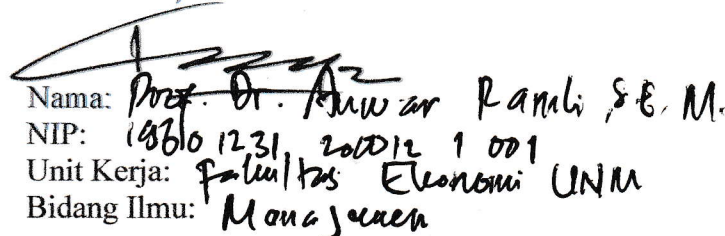 Nama: Prof. Dr. Anwar Ramli, S.E, M.
NIP: 19601231 200012 1 001
Unit Kerja: Fakultas Ekonomi UNM
Bidang Ilmu: Manajemen